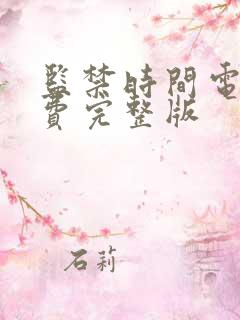 監禁時間電
費完整版
石莉